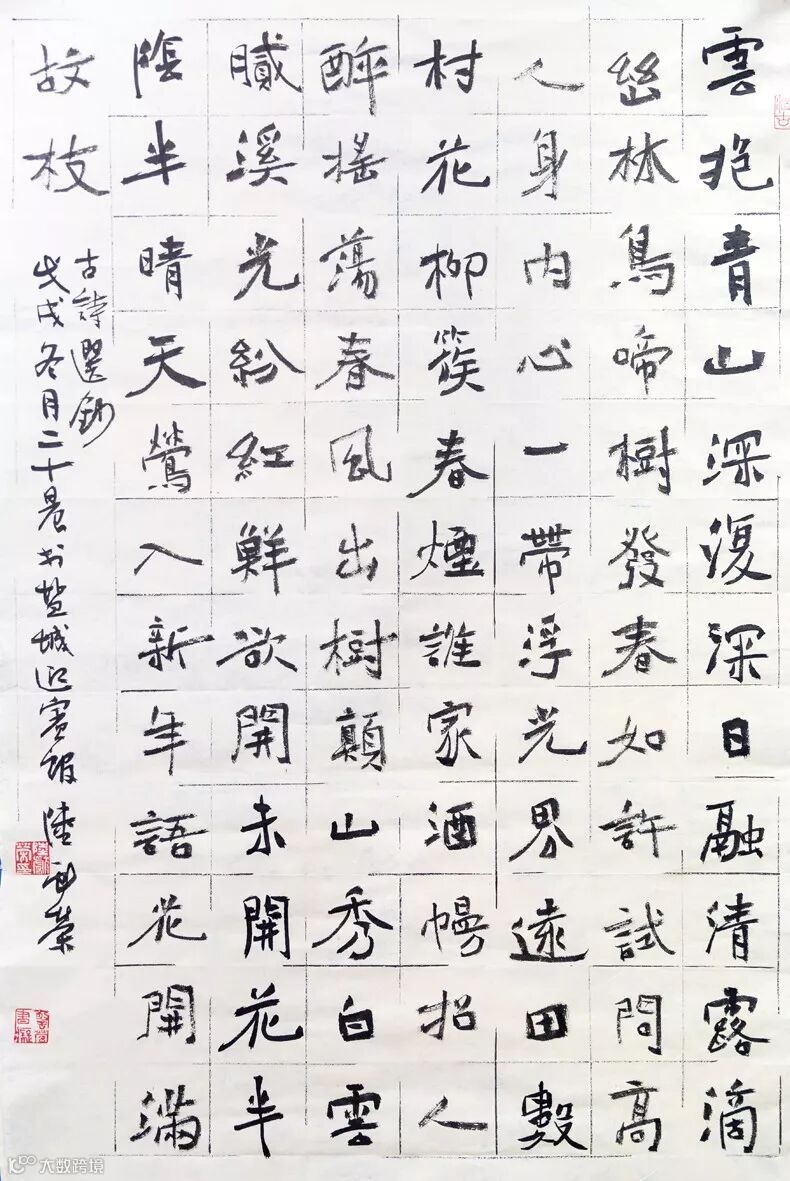 雲抱青山深復深日融清露滴
幽林鳥啼樹發春如許試問高
人身內心一帶浮光界遠田數
村花柳簇春煙誰家酒幔招人
醉搖蕩春風出樹顛山秀白雲
膩溪光紛紅鮮欲開未開花半
陰半晴天鶯入新年語花開滿
故枝
古詩選鈔
戊戌冬月二十晨书盐城迎賓館 陸 榮
大数跨境